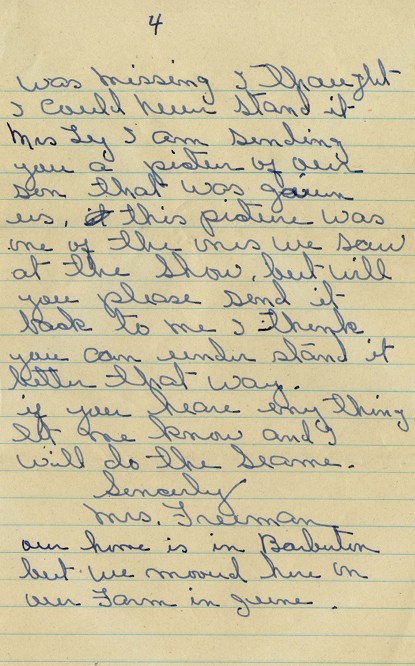 4
was missing I thaught
I could never stand it
Mrs Ley I am sending
you a pictur of our
son that was gaiven
us, this picture was
one of the ones we saw
at the show, but will
you please send it
back to me I think
you can under stand it
better that way.
if you heare any thing
let me know and I
will do the seame.
Sencerly
Mrs. Freeman
our home is in Barberton
but we moved here on
our Farm in june.